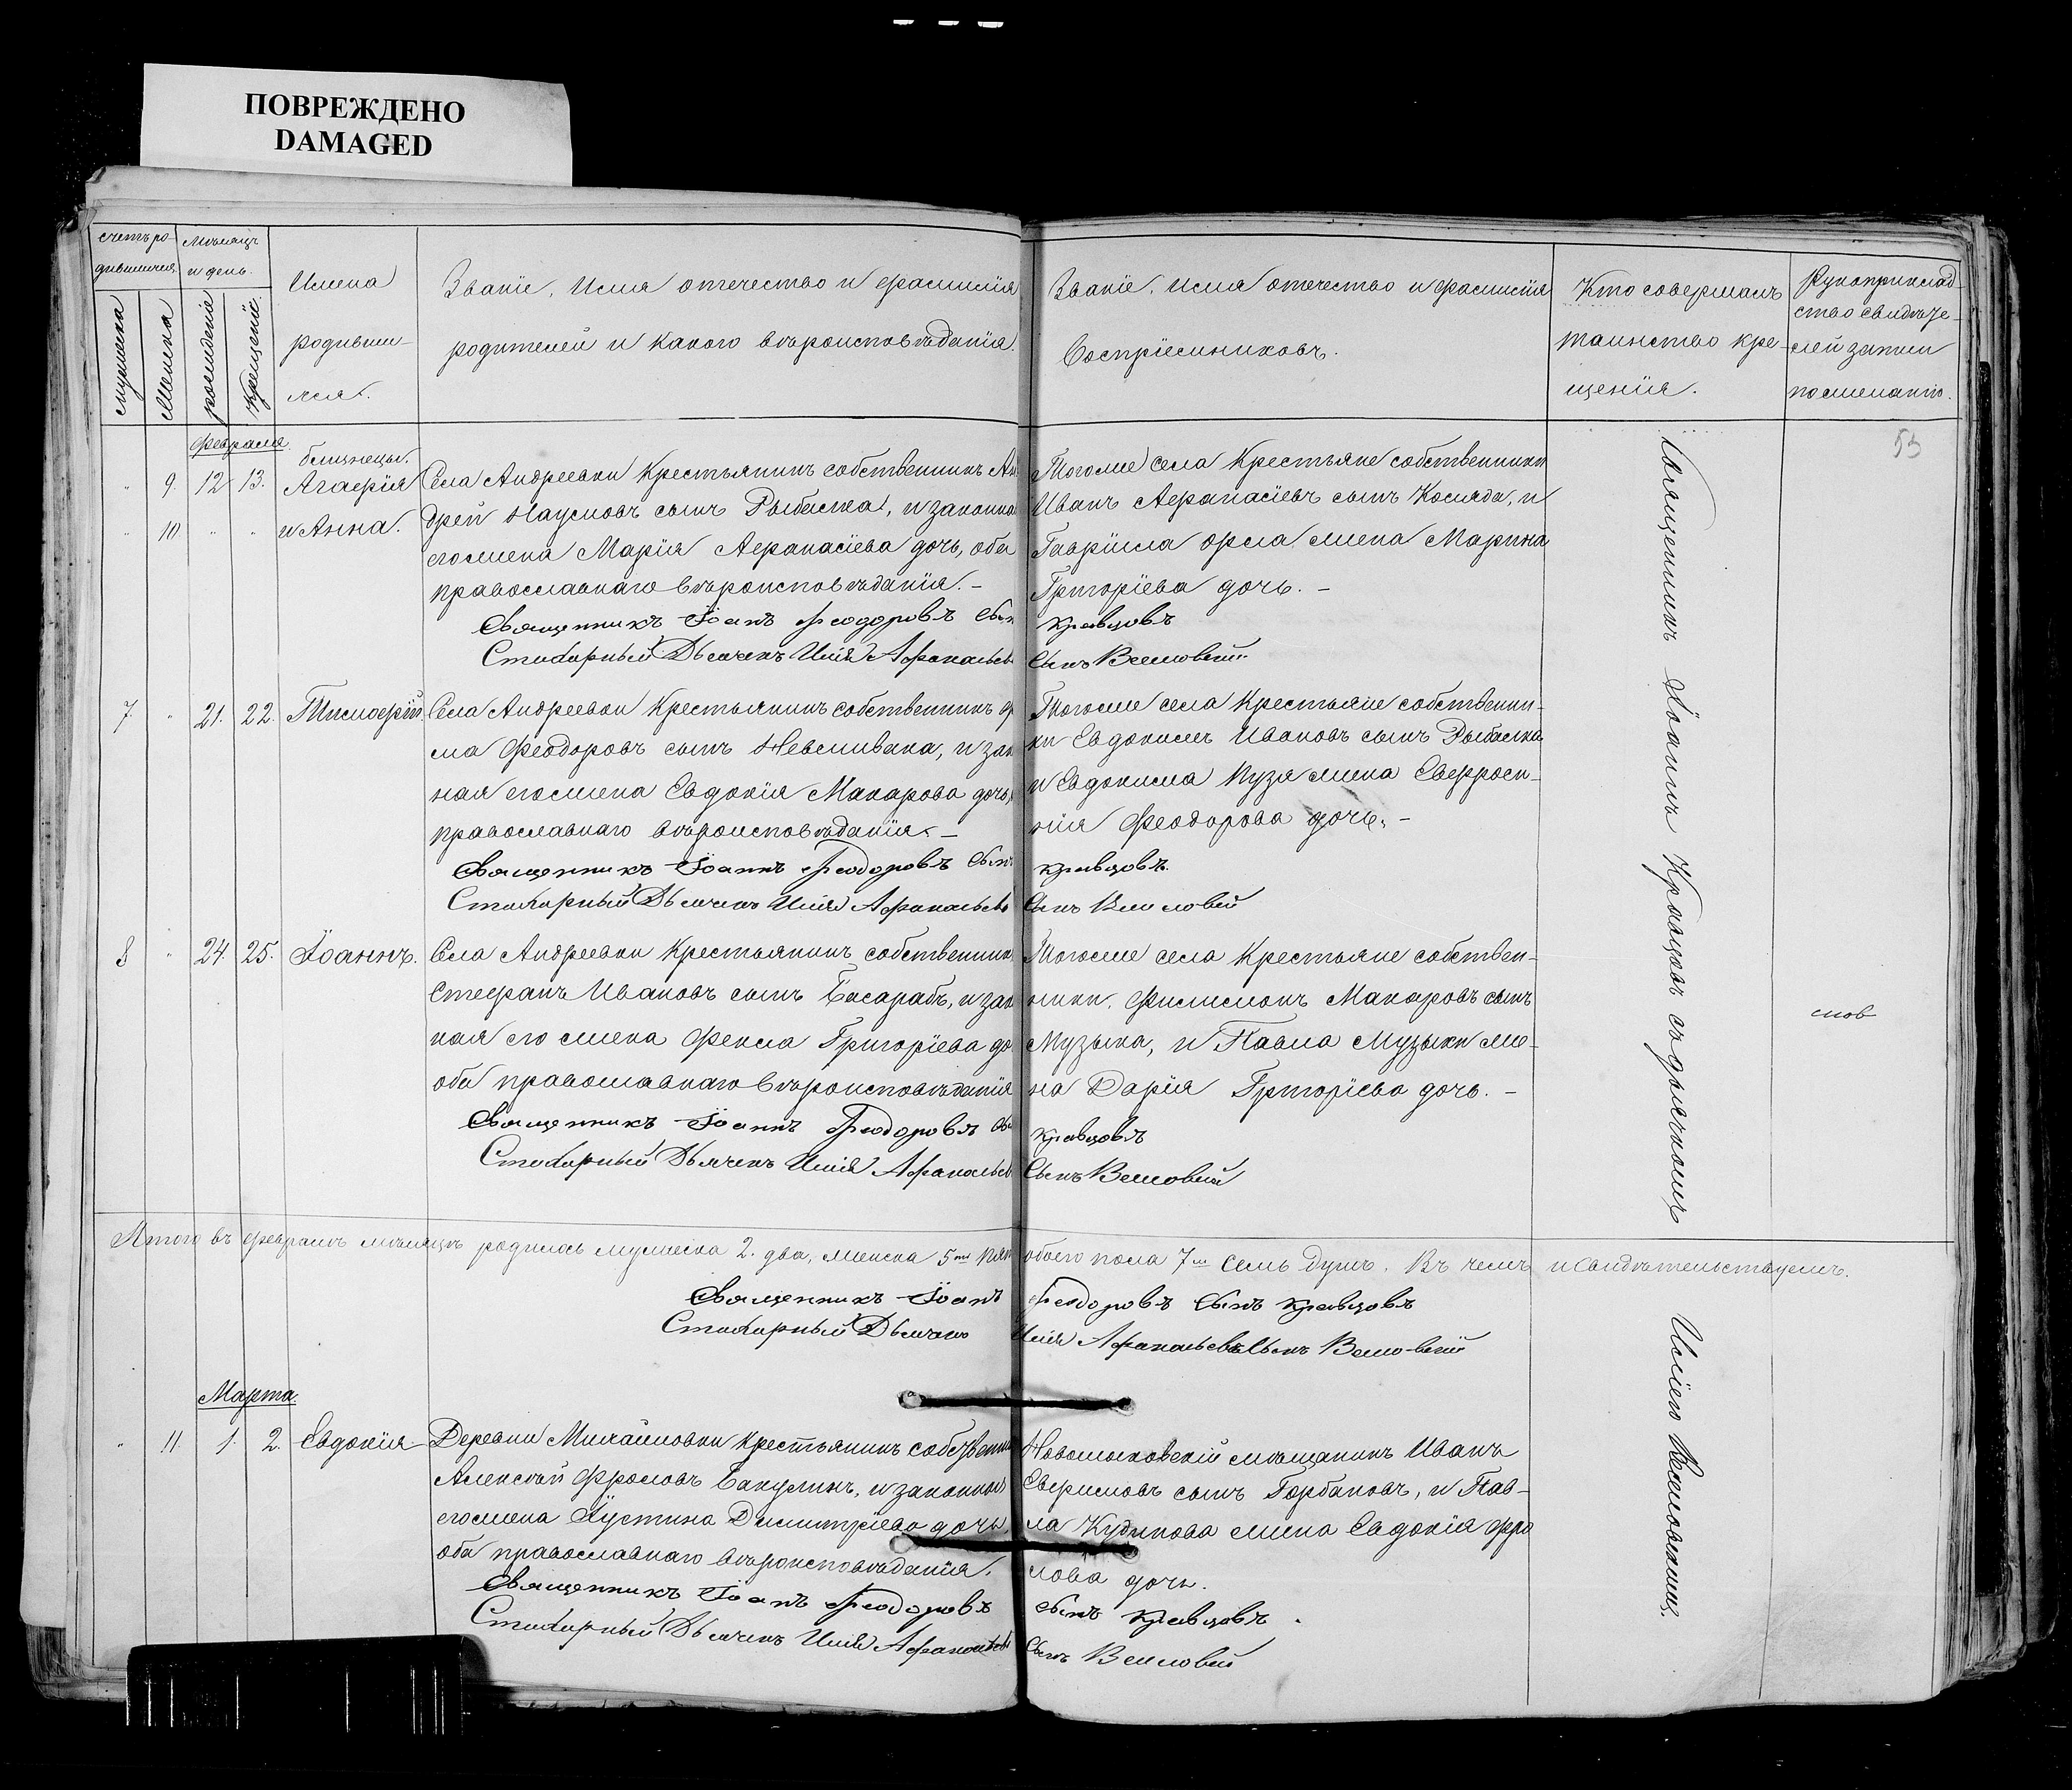 ПОВРЕЖДЕНО
DAMAGED
Счетъ ро-
дившихся.
Мѣсяцъ
и день.
мужеска
Женска
рожденіе
Крещеніе.
Имена
родивши-
хся.
Званіе, Имя отечество и фамилія
родителей и какого вѣроисповѣданія.
Званіе, имя отечество и фамилія
Воспріемниковъ.
Кто совершалъ
таинство кре-
щенія.
Рукоприклад-
ство свидѣте-
лей записи
по желанію.
53
февраля
близнецы.
" 9. 12 13. Агафія
" 10 " " и Анна.
Села Андреевки Крестьянинъ собственникъ Ан
дрей Наумовъ сынъ Рыбалка, и законна
егожена Марія Афанасіева дочь, оба
православнаго вѣроисповѣданія. -
Священникъ Іоаннъ Феодоровъ Сын
Стихарный Дьячекъ Илія Афанасьев
Тогоже села Крестьяне собственники
Иванъ Афанасіевъ сынъ Коляда, и
Гавріила орла жена Марина
Григоріева дочь. -
Кравцовъ
Сынъ
7. " 21. 22. Тимофей.
Села Андреевки Крестьянинъ собственникъ
ма Феодоровъ сынъ и зак
ная егожена Евдокія Макарова дочь,
православнаго вѣроисповѣданія. -
Священникъ Іоаннъ Феодоровъ Сын
Стихарный Дьячекъ Илія Афанасьев
Тогоже села Крестьяне собственни-
ки Евдокимъ Ивановъ сынъ Рыбалка
и Евдокима Пузя жена Евфроси-
нія Феодорова дочь. -
Кравцовъ.
Сынъ
8 " 24. 25. Іоаннъ.
Села Андреевки Крестьянинъ собственник
Стефанъ Ивановъ сынъ Басарабъ, и зак
ная его жена Фекла Григоріева до
оба православнаго вѣроисповѣданія
Священникъ Іоаннъ Феодоровъ Сы
Стихарный Дьячекъ Илія Афанасьев
Тогоже села Крестьяне собствен-
ники, Филимонъ Макаровъ сынъ
Музыка, и Павла Музыки же-
на Дарія Григоріева дочь. -
Кравцовъ
Сынъ
Итого въ февралѣ мѣсяцѣ родилось мужеска 2. два, женска 5ть пят обоего пола 7мь семь душъ. Въ чемъ и свидѣтельствуемъ.
Священникъ Іоаннъ Феодоровъ Сынъ Кравцовъ
Стихарный Дьячекъ Илія Афанасьевъ Сынъ
Марта.
" 11 1. 2. Евдокія
Деревни Михайловки Крестьянинъ собственни
Алексѣй Фроловъ Бакулинъ, и законная
егожена Іустина Димитріева дочь
оба православнаго вѣроисповѣданія.
Священникъ Іоаннъ Феодоровъ
Стихарный Дьячекъ Илія Афанасьев
Новомосковскій мѣщанинъ Иванъ
Ефимовъ сынъ Горбановъ, и Пав-
ла жена Евдокія Фро
лова дочь.
Сынъ Кравцовъ.
Сынъ
Священникъ Іоаннъ Кравцовъ съ дьячкомъ
Иліею